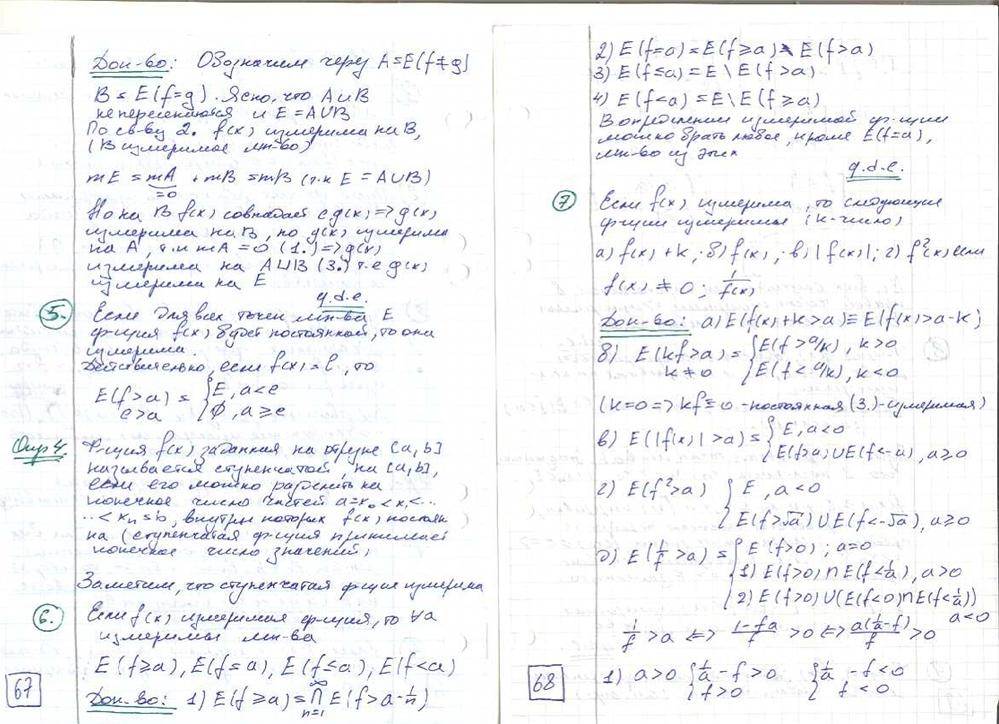 Док-во: Обозначим через A=E(f≠g)
B=E(f=g). Ясно, что A и B
не пересекаются и E=A∪B
По св-ву 2. f(x) измерима на B,
(B измеримое мн-во)
mE = mA + mB = mB (т.к E = A∪B)
=0
Но на B f(x) совпадает с g(x) => g(x)
измерима на B, но g(x) измерима
на A, т.к mA=0 (1.) => g(x)
измерима на A∪B (3.) т.е g(x)
измерима на E
q.d.e.
5. Если для всех точек мн-ва E
функция f(x) будет постоянной, то она
измерима.
Действительно, если f(x)=c, то
E(f>a) = { E, a<c
c>a { ∅, a≥c
Опр 4. Функция f(x) заданная на отрезке [a,b]
называется ступенчатой на [a,b],
если его можно разбить на
конечное число частей a=x₀<x₁<..
..<xₙ=b, внутри которых f(x) постоян
на (ступенчатая функция принимает
конечное число значений)
Заметим, что ступенчатая функция измерима
6. Если f(x) измеримая функция, то ∀a
измеримы мн-ва
E(f≥a), E(f=a), E(f≤a), E(f<a)
Док-во: 1) E(f≥a)=∩ₙ₌₁^∞ E(f>a-1/n)
67
2) E(f=a)=E(f≥a) \ E(f>a)
3) E(f≤a)=E \ E(f>a)
4) E(f<a)=E \ E(f≥a)
В определении измеримой функции
можно брать любое, кроме E(f=a),
мн-во из этих
q.d.e.
7 Если f(x) измерима, то следующие
функции измеримы (k-число)
а) f(x)+k; б) f(x); в) |f(x)|; г) f²(x) если
f(x) ≠ 0; 1/f(x)
Док-во: а) E(f(x)+k>a) ≡ E(f(x)>a-k)
б) E(kf>a) = { E(f>a/k), k>0
k≠0 { E(f<a/k), k<0
(k=0 => kf≡0 - постоянная (3.)-измеримая)
в) E(|f(x)|>a) = { E, a<0
{ E(f>a)∪E(f<-a), a≥0
г) E(f²>a) { E, a<0
{ E(f>√a)∪E(f<-√a), a≥0
д) E(1/f>a) = { E(f>0); a=0
{ 1) E(f>0)∩E(f<1/a), a>0
{ 2) E(f>0)∪(E(f<0)∩E(f<1/a))
a<0
1/f>a <=> (1-fa)/f >0 <=> a(1/a-f)/f >0
1) a>0 { 1/a-f>0 { 1/a-f<0
{ f>0 { f<0
68